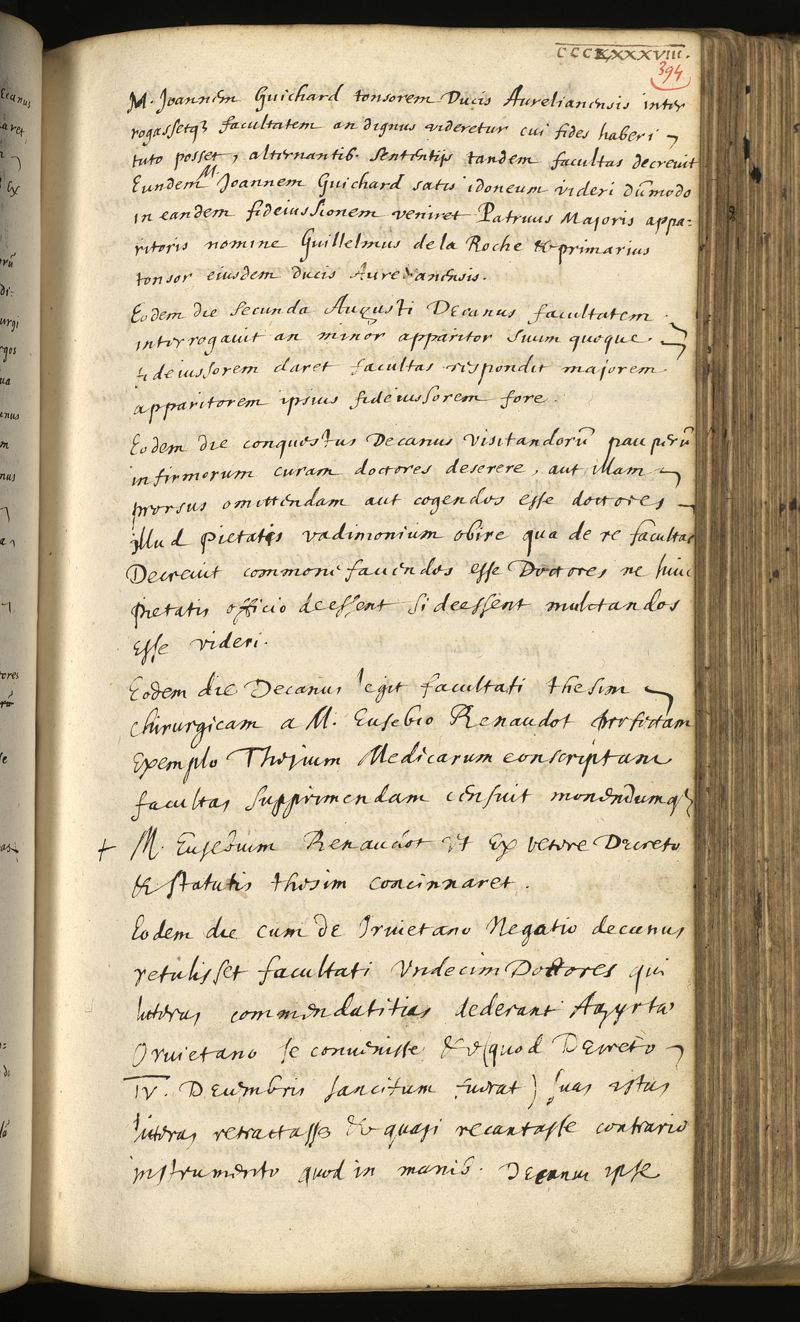 CCCLXXXXVIII.
394
M. Joannem Guichard tonsorem Ducis Aurelianensis inter
rogassetq; facultatem an dignus videretur cui fides haberi
tuto posset, alternantib. sententijs tandem facultas decrevit
Eundem M. Joannem Guichard satis idoneum videri dūmodo
in eandem fideiussionem veniret Patruus Majoris appa-
ritoris nomine Guillelmus de la Roche & primarius
tonsor eiusdem ducis Aurelianensis.
Eodem die secunda Augusti Decanus facultatem
interrogavit an minor apparitor suum quoque
fideiussorem daret facultas respondit majorem
apparitorem ipsius fideiussorem fore.
Eodem die conquestus Decanus visitandorū pauperū
infirmorum curam doctores deserere, aut illam
prorsus omittendam aut cogendos esse doctores
illud pietatis vadimonium obire qua de re facultas
Decrevit commonefaciendos esse Doctores ne huic
pietatis officio deessent si deessent mulctandos
esse videri.
Eodem die Decanus legit facultati thesim
chirurgicam a M. Eusebio Renaudot
Exemplo Thesium Medicarum conscriptam
facultas supprimendam censuit monendumq;
+ M. Eusebium Renaudot ut ex vetere Decreto
& statutis thesim concinnaret.
Eodem die cum de Orvietano Negotio decanus
retulisset facultati Undecim Doctores qui
literas commendatitias dederant Agyrtæ
Orvietano se convenisse & (quod Decreto
IV. Decembris sancitum fuerat) suas istas
literas retractasse & quasi recantasse contrario
instrumento quod in manib. Decanus ipse